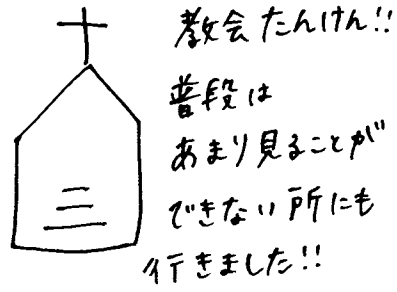 教会たんけん!!
普段は
あまり見ることが
できない所にも
行きました!!